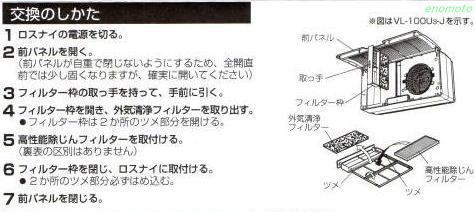 enomoto
交換のしかた
※図はVL-100Us-Jを示す。
1 ロスナイの電源を切る。
2 前パネルを開く。
(前パネルが自重で閉じないようにするため、全開直
前では少し固くなりますが、確実に開いてください)
3 フィルター枠の取っ手を持って、手前に引く。
4 フィルター枠を開き、外気清浄フィルターを取り出す。
●フィルター枠は2か所のツメ部分を開ける。
5 高性能除じんフィルターを取付ける。
(裏表の区別はありません)
6 フィルター枠を閉じ、ロスナイに取付ける。
●2か所のツメ部分必ずはめ込む。
7 前パネルを閉じる。
前パネル
取っ手
フィルター枠
外気清浄
フィルター
高性能除じん
フィルター
ツメ
ツメ